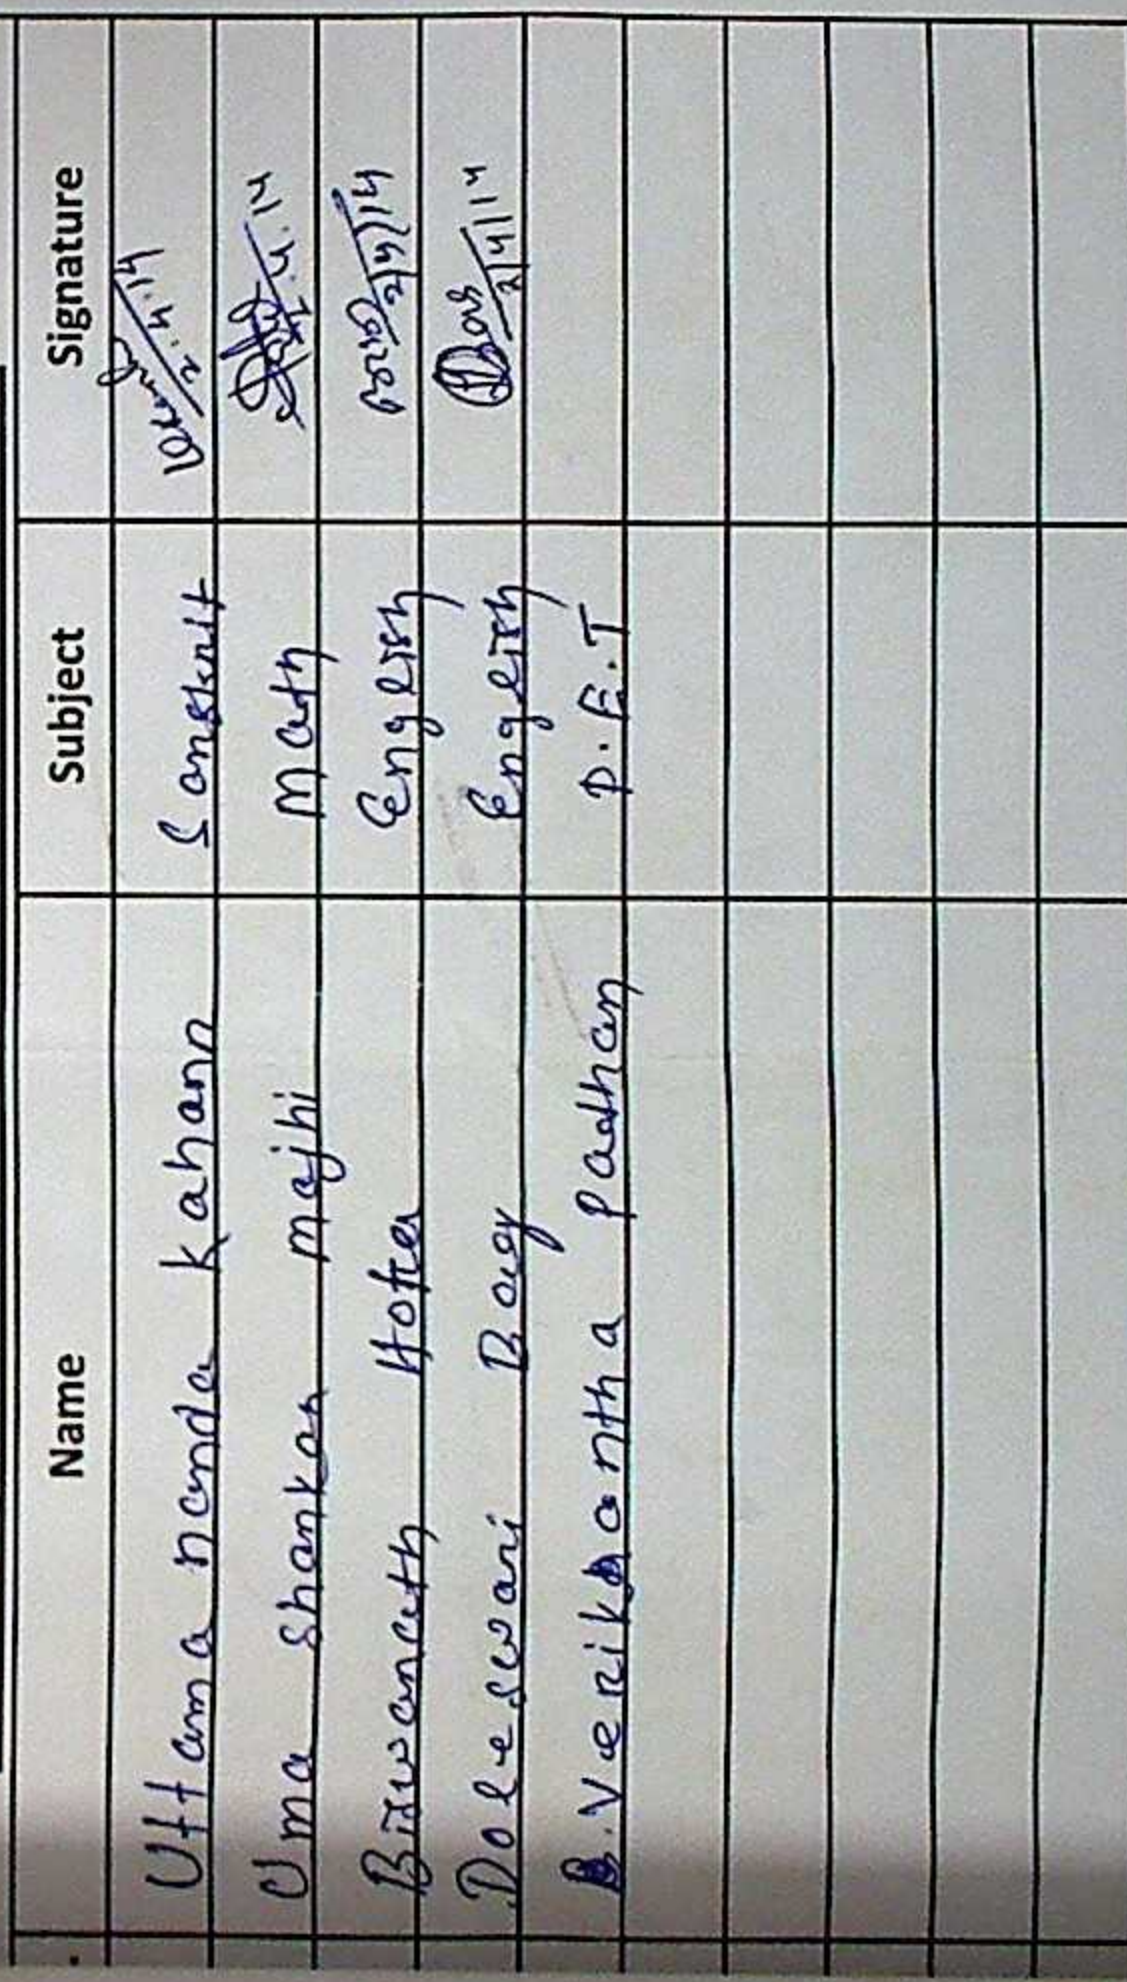 Name Subject Signature
Uttama nanda kahann Sanskrit 2.4.14
Uma Shankar majhi Math 2.4.14
Biswanath Hota English 2/4/14
Doleswari Bag English 2/4/14
B. Verikantha Padhan P.E.T